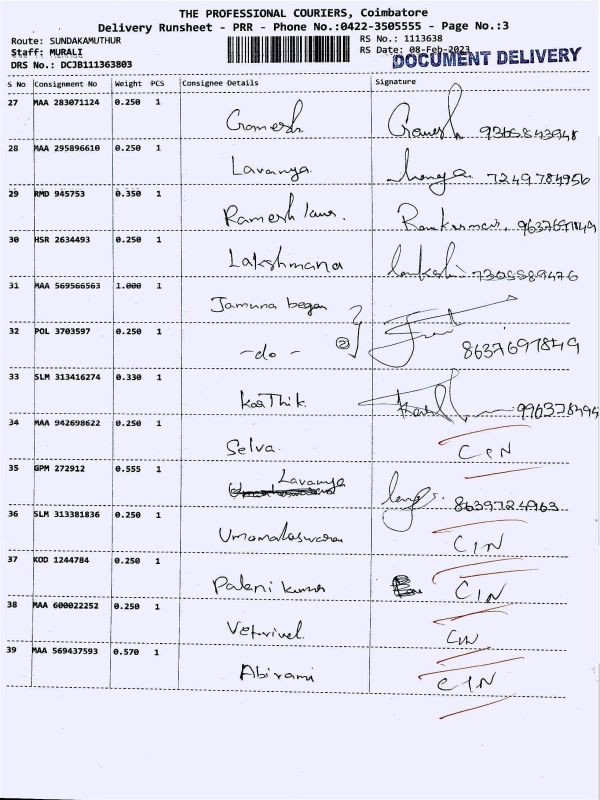 THE PROFESSIONAL COURIERS, Coimbatore
Delivery Runsheet - PRR - Phone No.:0422-3505555 - Page No.:3
Route: SUNDAKAMUTHUR RS No.: 1113638
Staff: MURALI RS Date: 08-Feb-2023
DOCUMENT DELIVERY
DRS No.: DCJB111363803
S No Consignment No Weight PCS Consignee Details Signature
27 MAA 283071124 0.250 1 Gramesh 9365843948
28 MAA 295896610 0.250 1 Lavanya 7249784956
29 RMD 945753 0.350 1 Ramesh kumar. Ramkumar, 9637697849
30 HSR 2634493 0.250 1 Lakshmana 7305589476
31 MAA 569566563 1.000 1 Jamuna began
32 POL 3703597 0.250 1 -do- 2 8637697849
33 SLM 313416274 0.330 1 karthik.
34 MAA 942698622 0.250 1 Selva CIN
35 GPM 272912 0.555 1 Lavanya 8639724963
36 SLM 313381836 0.250 1 Umamaheswaran CIN
37 KOD 1244784 0.250 1 Palani kumar CIN
38 MAA 600022252 0.250 1 Vetrivel CIN
39 MAA 569437593 0.570 1 Abirami CIN